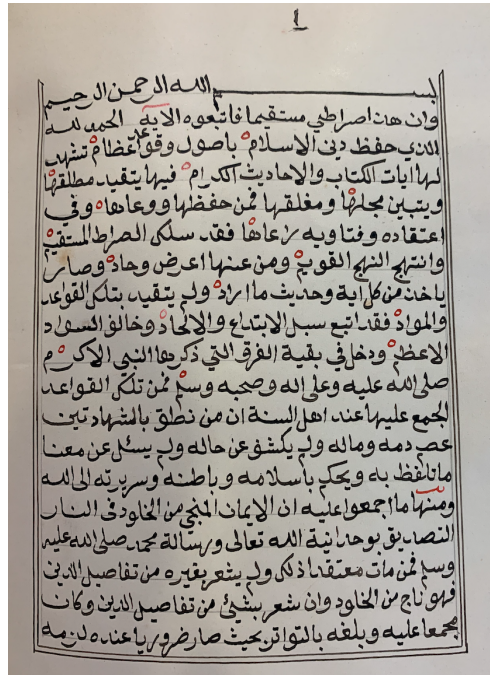 ١
بســـــم الله الرحمن الرحيم
وان هذا صراطي مستقيما فاتبعوه الاية الحمد لله
الذي حفظ دين الاسلام باصول وقواعد عظام تشهد
لها ايات الكتاب والاحاديث الكرام فيها يتقيد مطلقها
ويتبين مجملها ومغلقها فمن حفظها ووعاها وفي
اعتقاده وفتاويه راعاها فقد سلك الصراط المستقيم
وانتهج النهج القويم ومن عنها اعرض وحاد وصار
ياخذ من كل اية وحديث ما اراد ولم يتقيد بتلك القواعد
والمواد فقد اتبع سبل الابتداع والالحاد وخالف السواد
الاعظم ودخل في بقية الفرق التي ذكرها النبي الاكرم
صلى الله عليه وعلى اله وصحبه وسلم فمن تلك القواعد
المجمع عليها عند اهل السنة ان من نطق بالشهادتين
عصم دمه وماله ولم يكشف عن حاله ولم يسئل عن معنا
ما تلفظ به ويحكم باسلامه وباطنه وسريرته الى الله
ومنها ما اجمعوا عليه ان الايمان المنجي من الخلود في النار
التصديق بوحدانية الله تعالى ورسالة محمد صلى الله عليه
وسلم فمن مات معتقدا ذلك ولم يشعر بغيره من تفاصيل الدين
فهو ناج من الخلود وان شعر بشيئ من تفاصيل الدين وكان
مجمعا عليه وبلغه بالتواتر بحيث صار ضروريا عنده لزمه